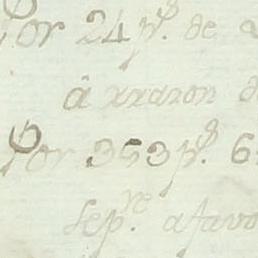 Por 24 p.s de
â rrazon d
Por 353 p.s 6
sep.re a favo